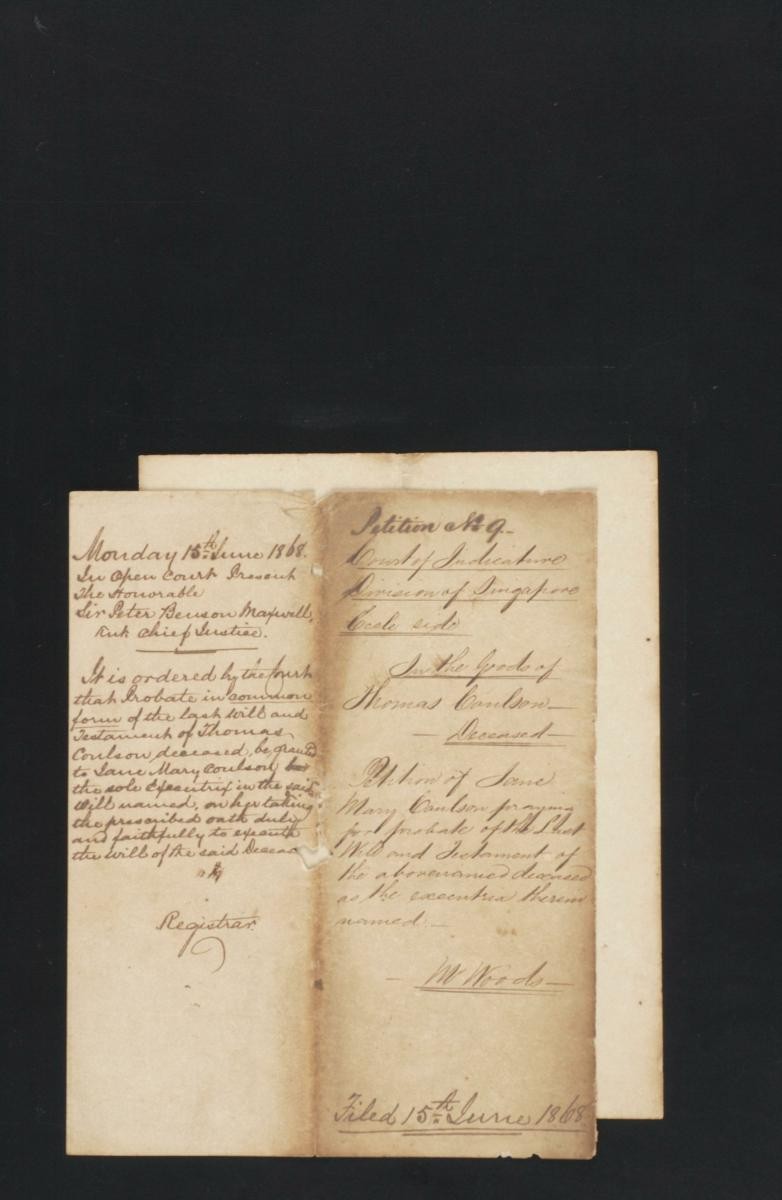 Monday 15th June 1868.
In Open Court Present
The Honorable
Sir Peter Benson Maxwell,
Knt Chief Justice.
It is ordered by the Court
that Probate in common
form of the last Will and
Testament of Thomas
Coulson, deceased, be granted
to Jane Mary Coulson
the sole Executrix in the said
Will named, on her taking
the prescribed oath duly
and faithfully to execute
the will of the said Deceas
Registrar.
Petition No 9.
Court of Judicature
Division of Singapore
Eccle side
In the Goods of
Thomas Coulson
Deceased
Petition of Jane
Mary Coulson praying
for probate of the Last
Will and Testament of
the abovenamed deceased
as the executrix therein
named.
Mr Woods
Filed 15th June 1868